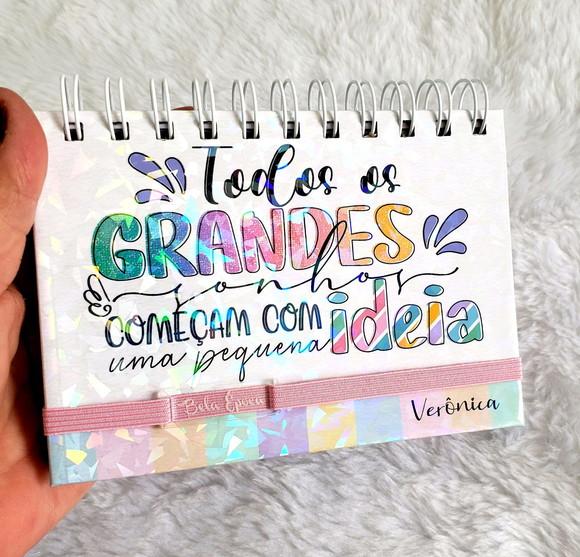 Todos os
GRANDES
sonhos
COMEÇAM COM
uma pequena ideia
Bela Época
Verônica